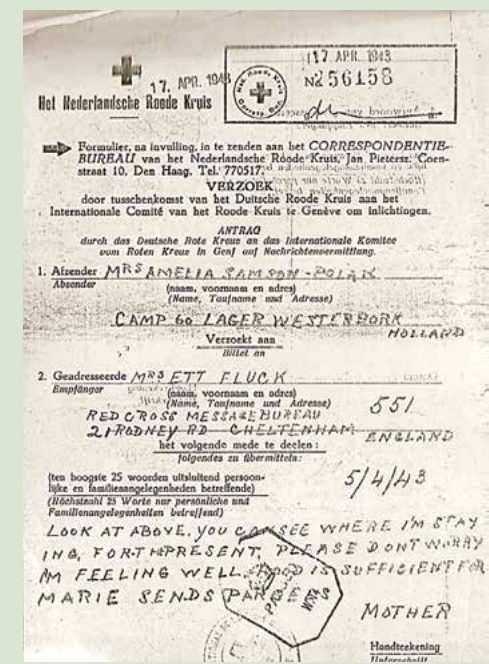 17. APR. 1943
17. APR. 1943
Het Nederlandsche Roode Kruis
№ 56158
Formulier, na invulling, in te zenden aan het CORRESPONDENTIE-
BUREAU van het Nederlandsche Roode Kruis, Jan Pietersz. Coen-
straat 10, Den Haag. Tel. 770517.
VERZOEK
door tusschenkomst van het Duitsche Roode Kruis aan het
Internationale Comité van het Roode Kruis te Genève om inlichtingen.
ANTRAG
durch das Deutsche Rote Kreuz an das Internationale Komitee
vom Roten Kreuz in Genf auf Nachrichtenvermittlung.
1. Afzender MRS AMELIA SAMSON-POLAK
Absender
(naam, voornaam en adres)
(Name, Taufname und Adresse)
CAMP 60 LAGER WESTERBORK
HOLLAND
Verzoekt aan
Bittet an
2. Geadresseerde MRS ETT FLUCK
Empfänger
(naam, voornaam en adres)
(Name, Taufname und Adresse)
551
RED CROSS MESSAGE BUREAU
21 RODNEY RD CHELTENHAM
ENGLAND
het volgende mede te deelen:
folgendes zu übermitteln:
(ten hoogste 25 woorden uitsluitend persoon-
lijke en familieaangelegenheden betreffende)
5/4/43
(Höchstzahl 25 Worte nur persönliche und
Familienangelegenheiten betreffend)
LOOK AT ABOVE. YOU CAN SEE WHERE I'M STAY
ING, FOR THPRESENT, PLEASE DONT WORRY
I'M FEELING WELL. IS SUFFICIENT FOR
MARIE SENDS
MOTHER
Handteekening
Unterschrift